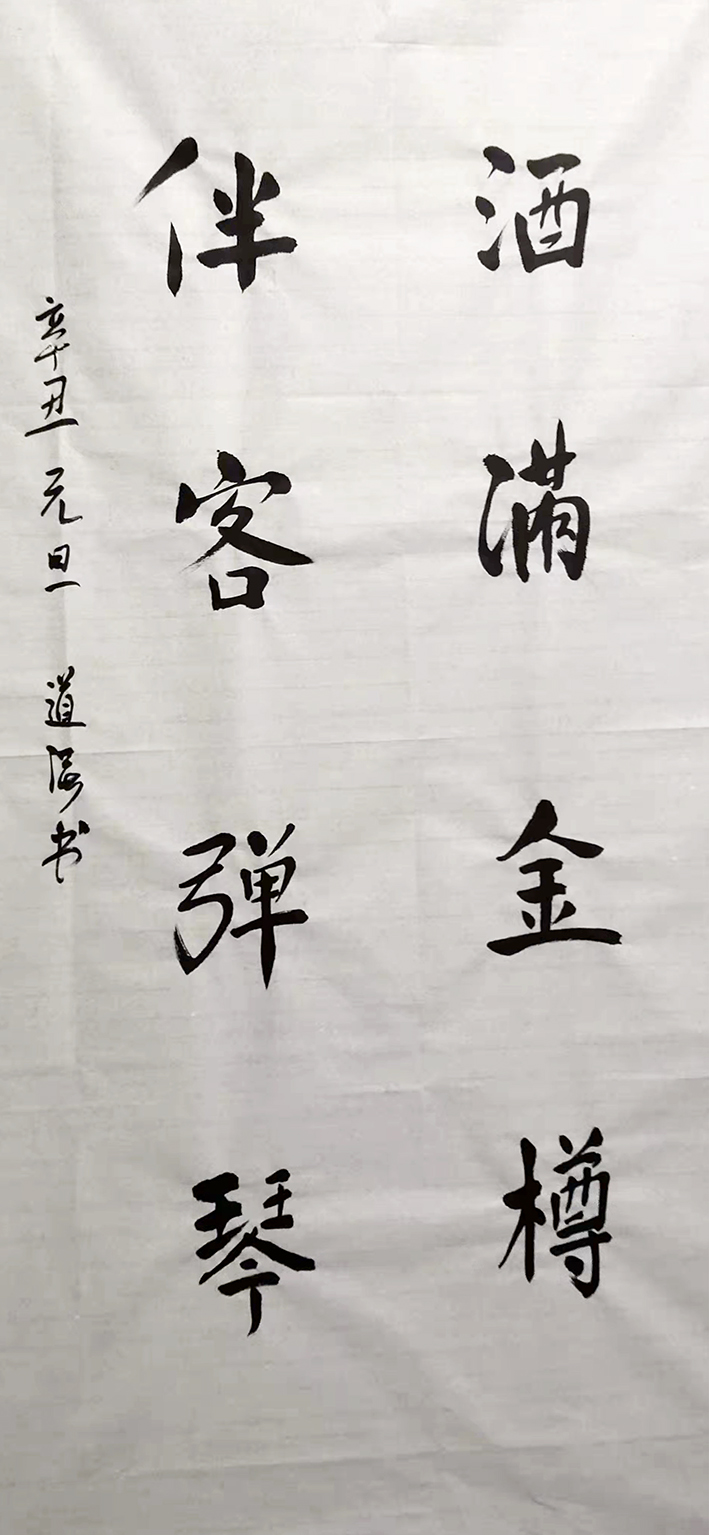 酒满金樽
伴客弹琴
辛丑元旦 道海书